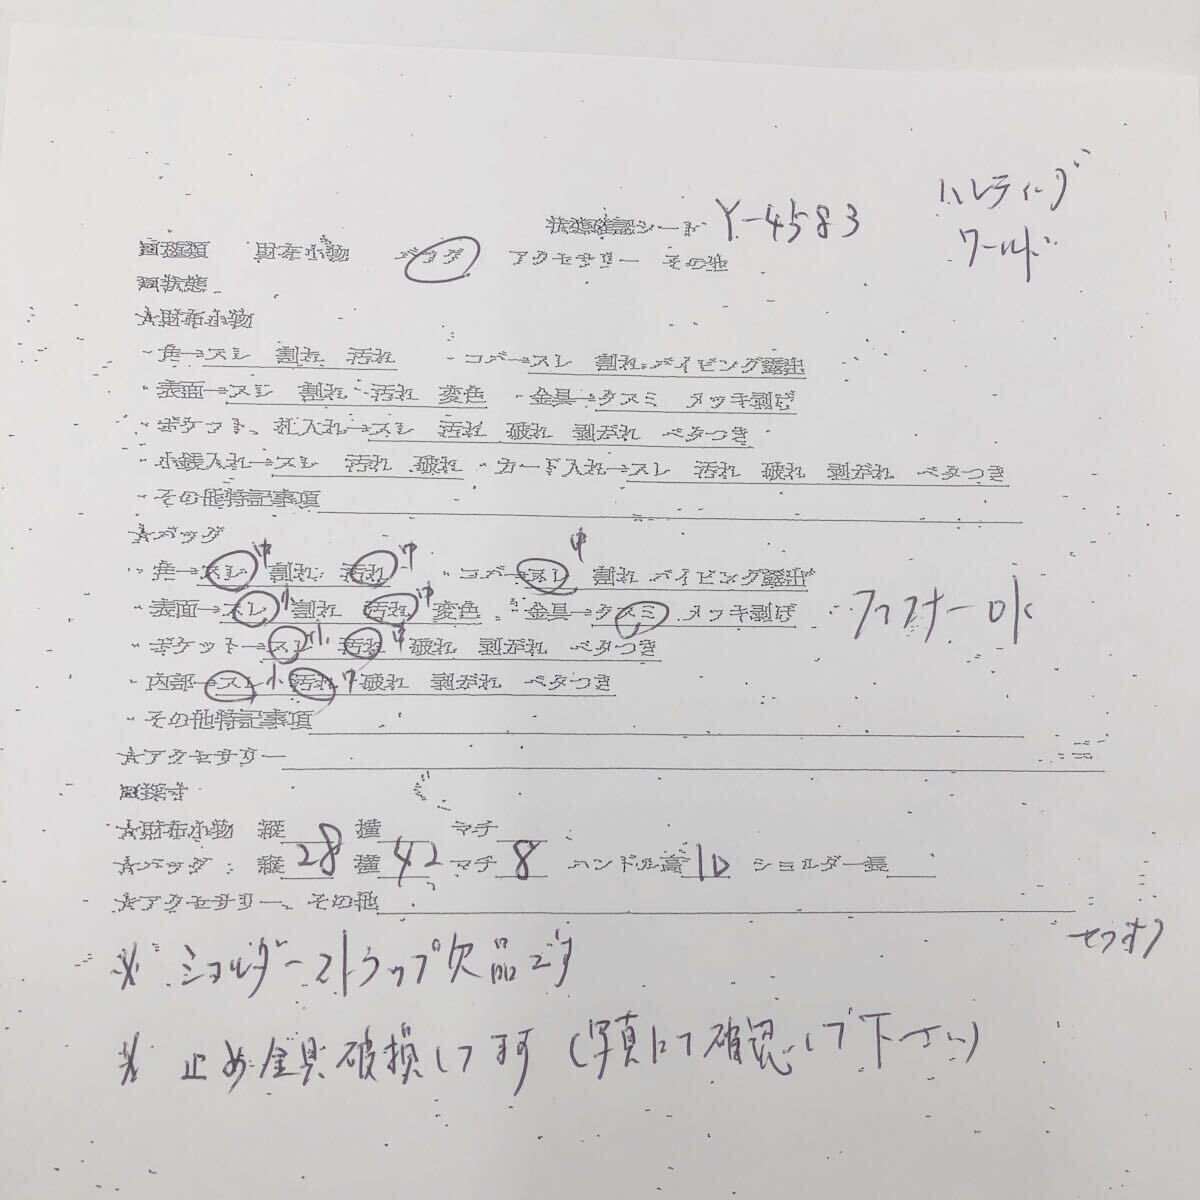 状態確認シート Y-4583 ハンティング
ワールド
□種類 財布小物 バッグ アクセサリー その他
□状態
★財布小物
・角→スレ 割れ 汚れ ・コバ→スレ 割れ パイピング露出
・表面→スレ 割れ 汚れ 変色 ・金具→クスミ メッキ剥げ
・ポケット、札入れ→スレ 汚れ 破れ 剥がれ ベタつき
・小銭入れ→スレ 汚れ 破れ ・カード入れ→スレ 汚れ 破れ 剥がれ ベタつき
・その他特記事項
★バッグ
・角→スレ 中 割れ 汚れ 中 ・コバ→スレ 中 割れ パイピング露出
・表面→スレ 小 割れ 汚れ 中 変色 ・金具→クスミ メッキ剥げ ファスナーOK
・ポケット→スレ 小 汚れ 中 破れ 剥がれ ベタつき
・内部→スレ 小 汚れ 破れ 剥がれ ベタつき
・その他特記事項
★アクセサリー
□採寸
★財布小物 縦 横 マチ
★バッグ:縦 28 横 42 マチ 8 ハンドル高 10 ショルダー長
★アクセサリー、その他
※ ショルダーストラップ欠品です
※ 止め金具破損してます(写真にて確認して下さい)